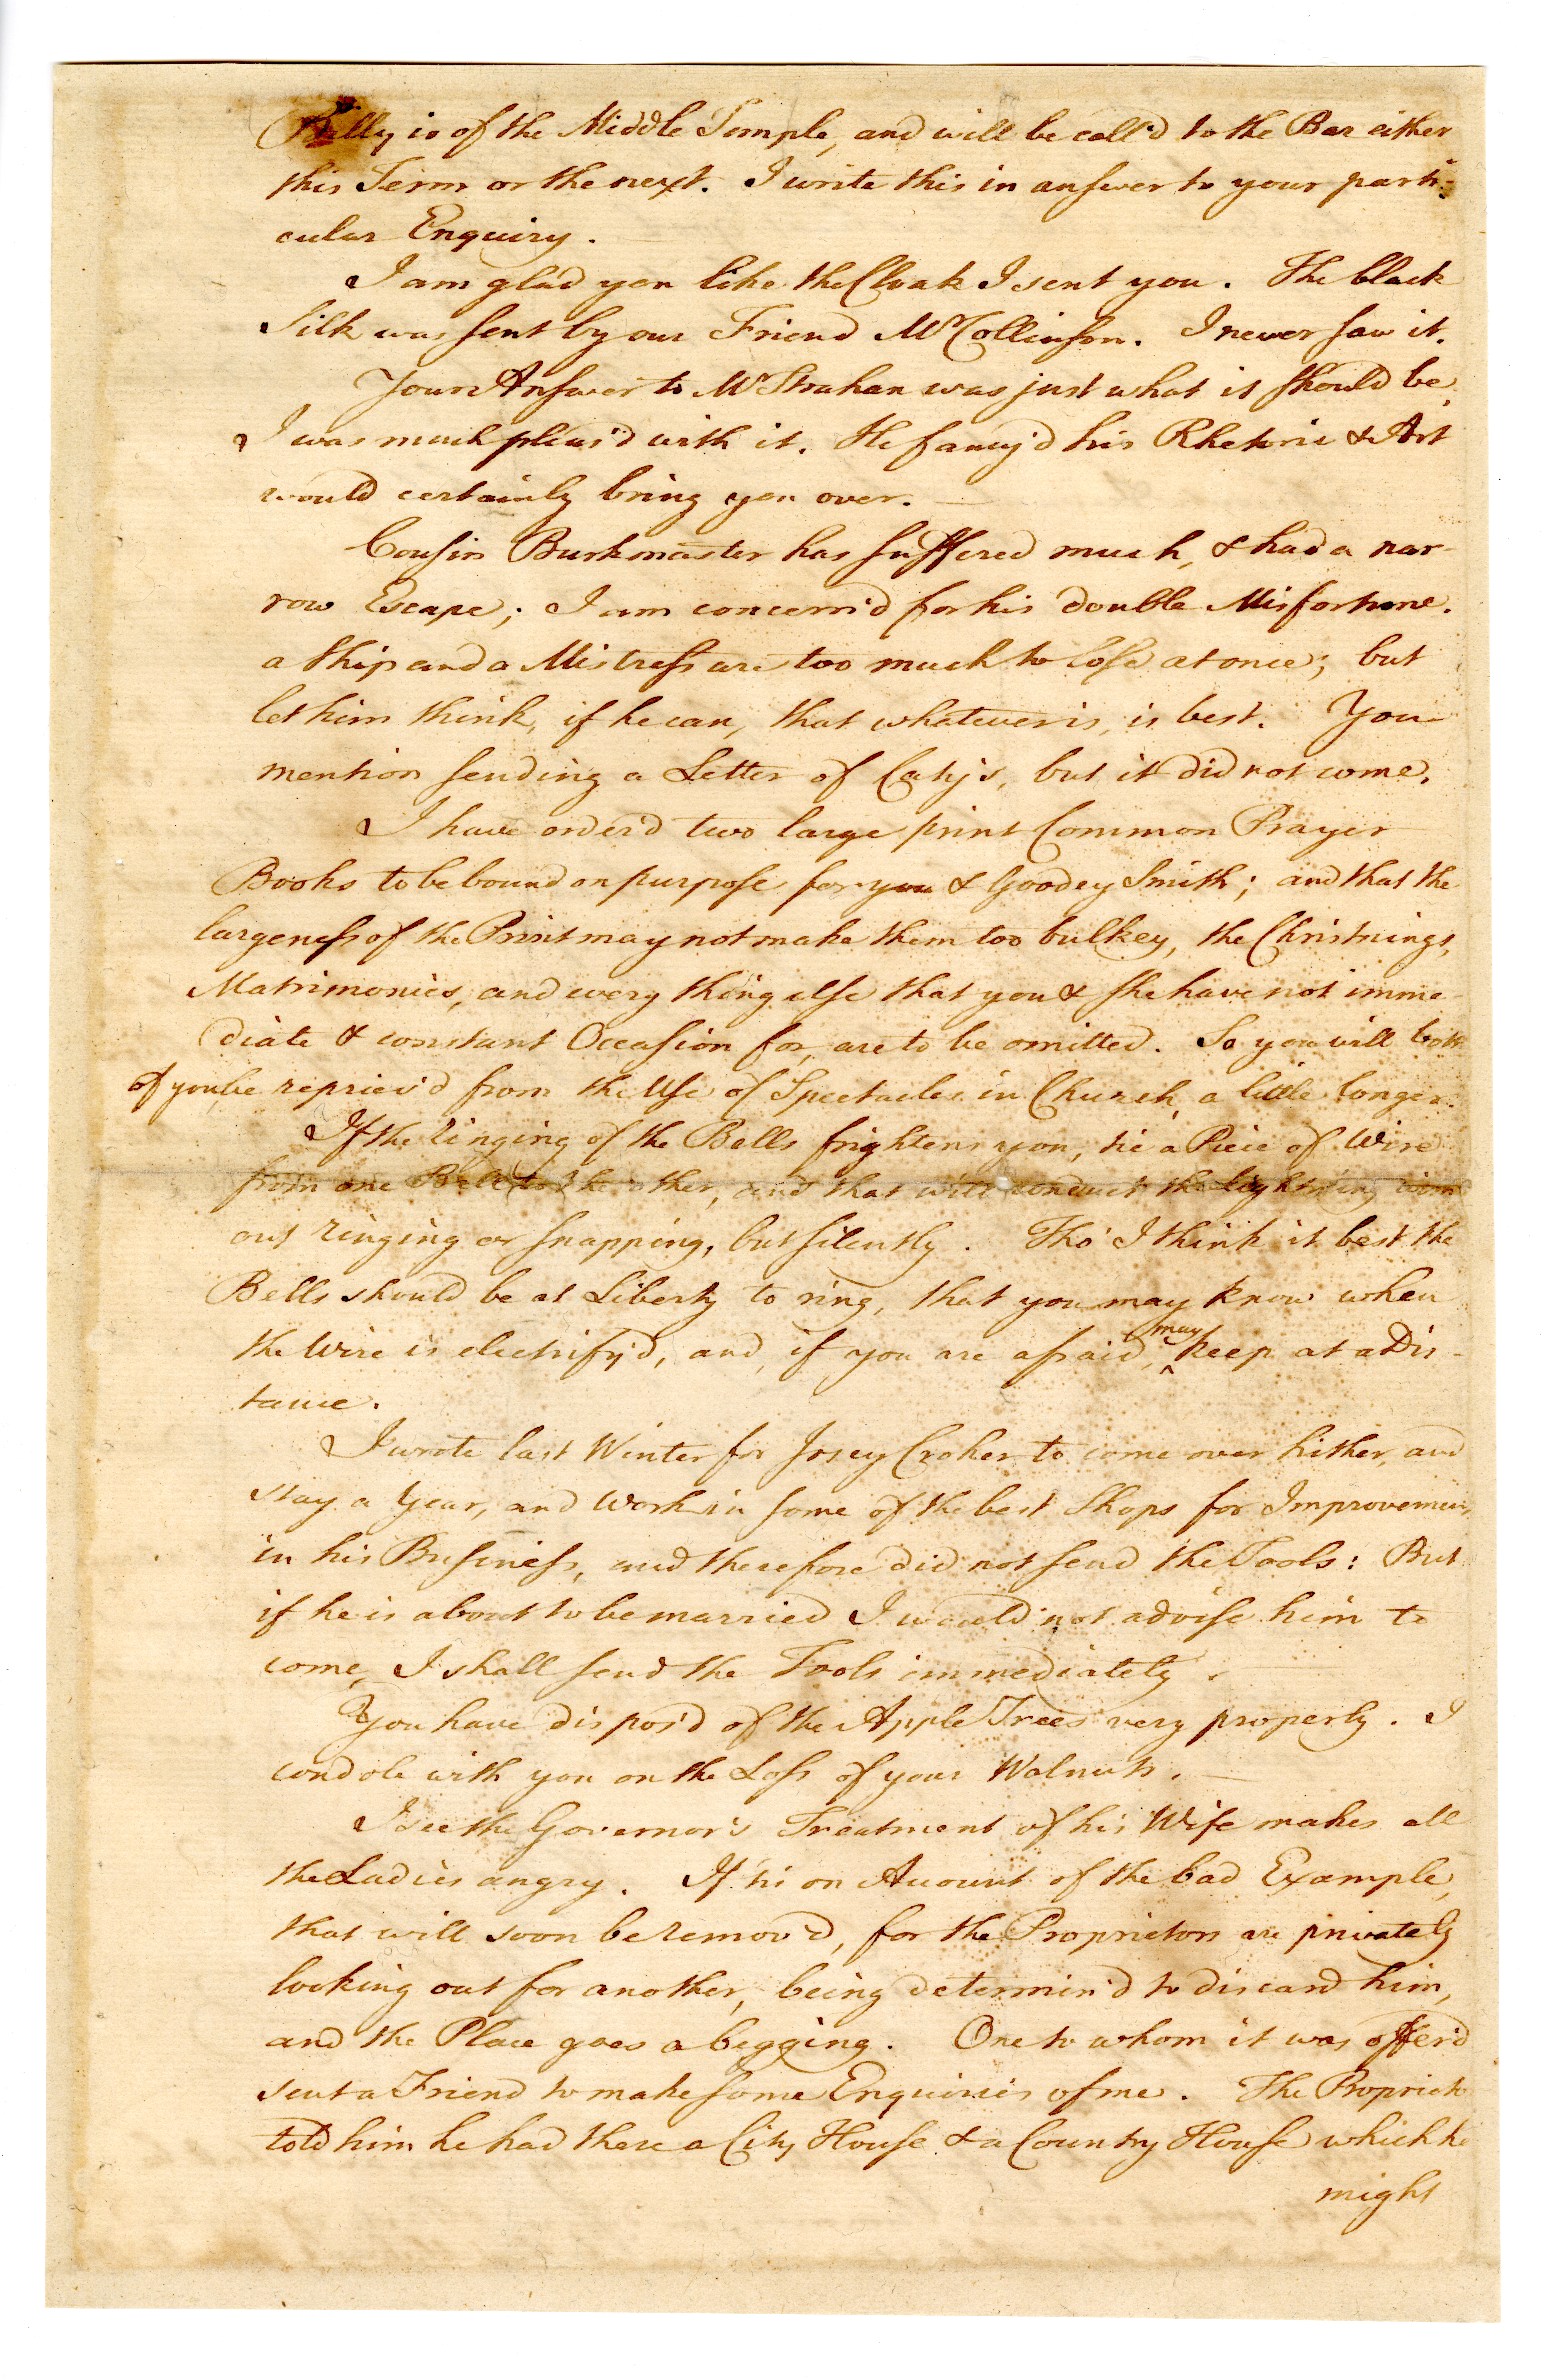 Billy is of the Middle Temple, and will be call'd to the Bar either
this Term or the next. I write this in answer to your parti-
cular Enquiry.
I am glad you like the Cloak I sent you. The black
Silk was sent by our Friend Mr Collinson. I never saw it.
Your Answer to Mr Strahan was just what it should be,
I was much pleas'd with it. He fancy'd his Rhetoric & Art
would certainly bring you over.
Cousin Burkmaster has suffered much, & had a nar-
row Escape; I am concern'd for his double Misfortune.
a Ship and a Mistress are too much to lose at once; but
let him think, if he can, that whatever is, is best. You
mention sending a Letter of Caty's, but it did not come.
I have order'd two large print Common Prayer
Books to be bound on purpose for you & Goodey Smith; and that the
largeness of the Print may not make them too bulkey, the Christnings,
Matrimonies, and every thing else that you & she have not imme-
diate & constant Occasion for, are to be omitted. So you will both
of you be repriev'd from the Use of Spectacles in Church a little longer.
If the ringing of the Bells frightens you, tie a Piece of Wire
from one Bell to the other, and that will conduct the lightning with
out ringing or snapping, but silently. Tho' I think it best the
Bells should be at Liberty to ring, that you may know when
the Wire is electrify'd, and, if you are afraid, may keep at a Dis-
tance.
I wrote last Winter for Josey Croker to come over hither, and
stay a Year, and work in some of the best Shops for Improvement
in his Business, and therefore did not send the Tools: But
if he is about to be married I would not advise him to
come, I shall send the Tools immediately.
You have dispos'd of the Apple Trees very properly. I
condole with you on the Loss of your Walnuts.
I see the Governor's Treatment of his Wife makes all
the Ladies angry. If 'tis on Account of the bad Example,
that will soon be remov'd, for the Proprietors are privately
looking out for another, being determin'd to discard him,
and the Place goes a begging. One to whom it was offer'd
sent a Friend to make some Enquiries of me. The Proprieto
told him he had there a City House & a Country House which he
might